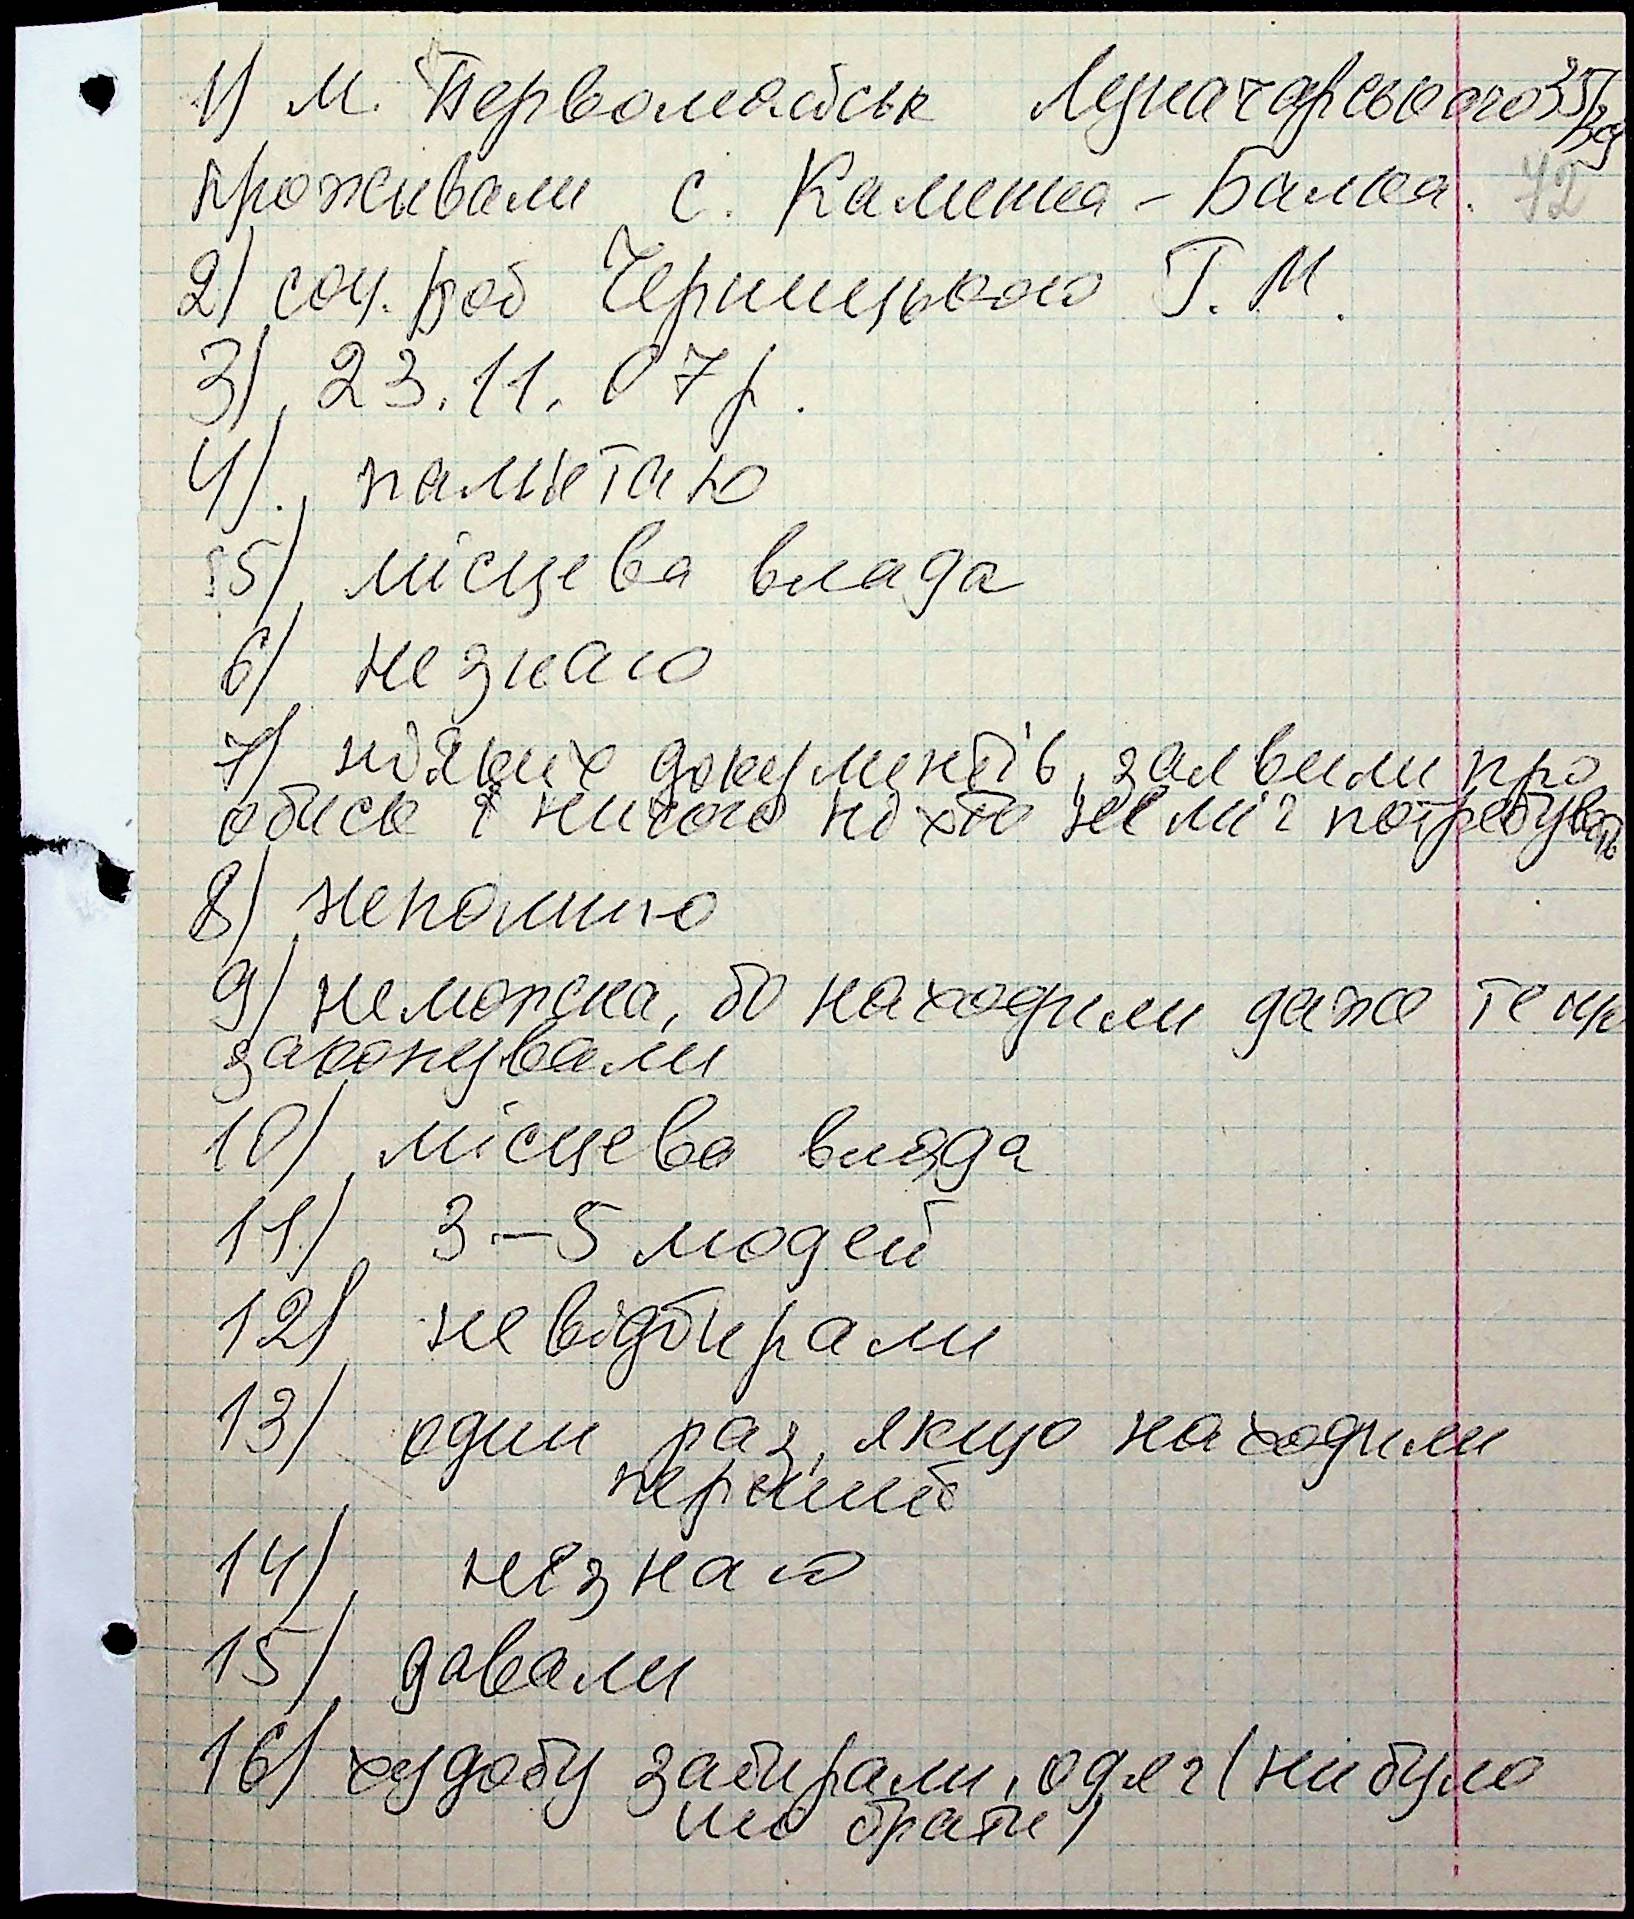 1) м. Первомайськ Луначарського 35/39
проживали с. Каменна-Балка. 42
2) соц. роб Черницького Г. М.
3) 23.11.07р.
4) памытаю
5) місцева влада
6) незнаю
7) ніяких документів, заявили про
обиск і ничого ніхто не міг потребувать
8) непомню
9) неможна, бо находили даже те що
закопували
10) місцева влада
11) 3-5 людей
12) не відбирали
13) один раз, якщо находили
перший
14) незнаю
15) давали
16) худобу забирали, одяг (не було
що брати)